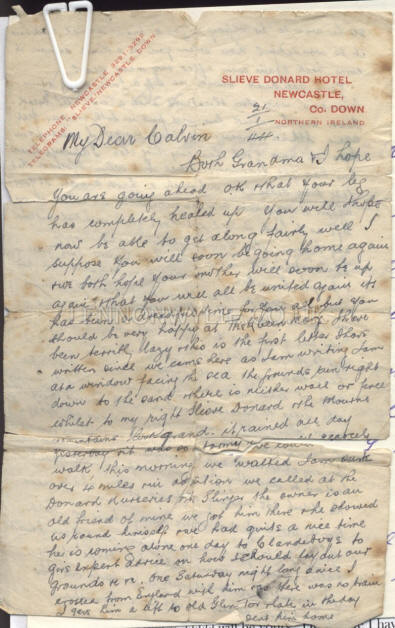 TELEPHONE NEWCASTLE
TELEGRAMS: SLIEVE/NEWCASTLE, DOWN
SLIEVE DONARD HOTEL
NEWCASTLE,
Co. DOWN
NORTHERN IRELAND
21
1
44
My Dear Calvin
Both Grandma & I hope
You are going ahead OK & that your leg
has completely healed up You will
now be able to get along fairly well I
suppose You will soon be going home again
& we both hope your mother will soon be up
again & that You will all be united again its
has been time for You all but you
should be very happy at I have
been terribly lazy & this is the first letter I have
written since we came here as I am writing I am
at a window facing the sea the grounds run right
down to the sand there is neither wall or fence
whilst to my right Slieve Donard & the Mourne
mountains look grand. it rained all day
yesterday & it was so stormy we could scarcely
walk this morning we walked I am sure
over 4 miles in addition we called at the
Donard Nurseries Mr Slinger the owner is an
old friend of mine we got him there & he showed
us round himself & we had quite a nice time
he is coming alone one day to Clandeboye to
give expert advice on how I should lay out our
grounds One Saturday night long since I
crossed from England with him there was no train
I gave him a lift to old Slinger late in the day
sent him home